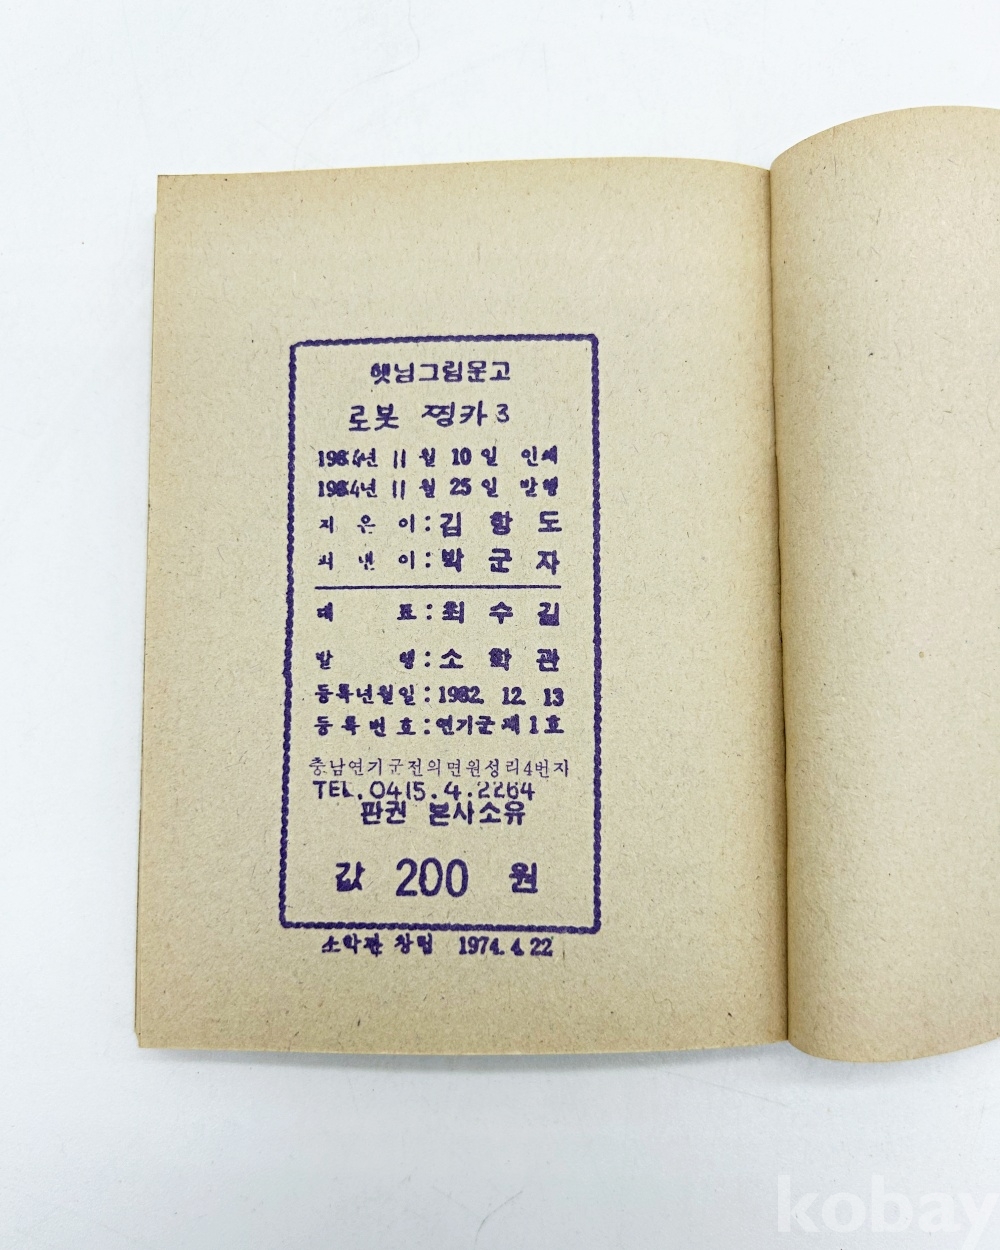 햇님그림문고
로봇 찡카 3
1984년 11월 10일 인쇄
1984년 11월 25일 발행
지은이:김항도
펴낸이:박군자
대표:최수길
발행:소학관
등록년월일:1982. 12. 13
등록번호:연기군 제1호
충남연기군전의면원성리4번지
TEL. 0415.4.2264
판권 본사소유
값 200 원
소학관 창립 1974. 4. 22
kobay